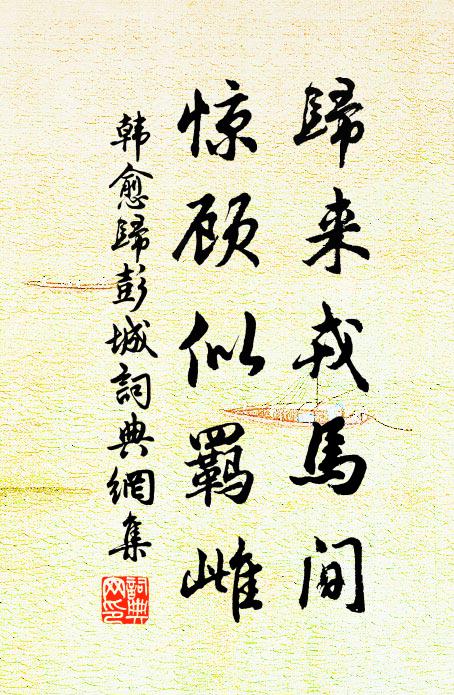 歸来戎馬间
惊顾似羈雌
韩愈歸彭城詞典網集
詞典网印